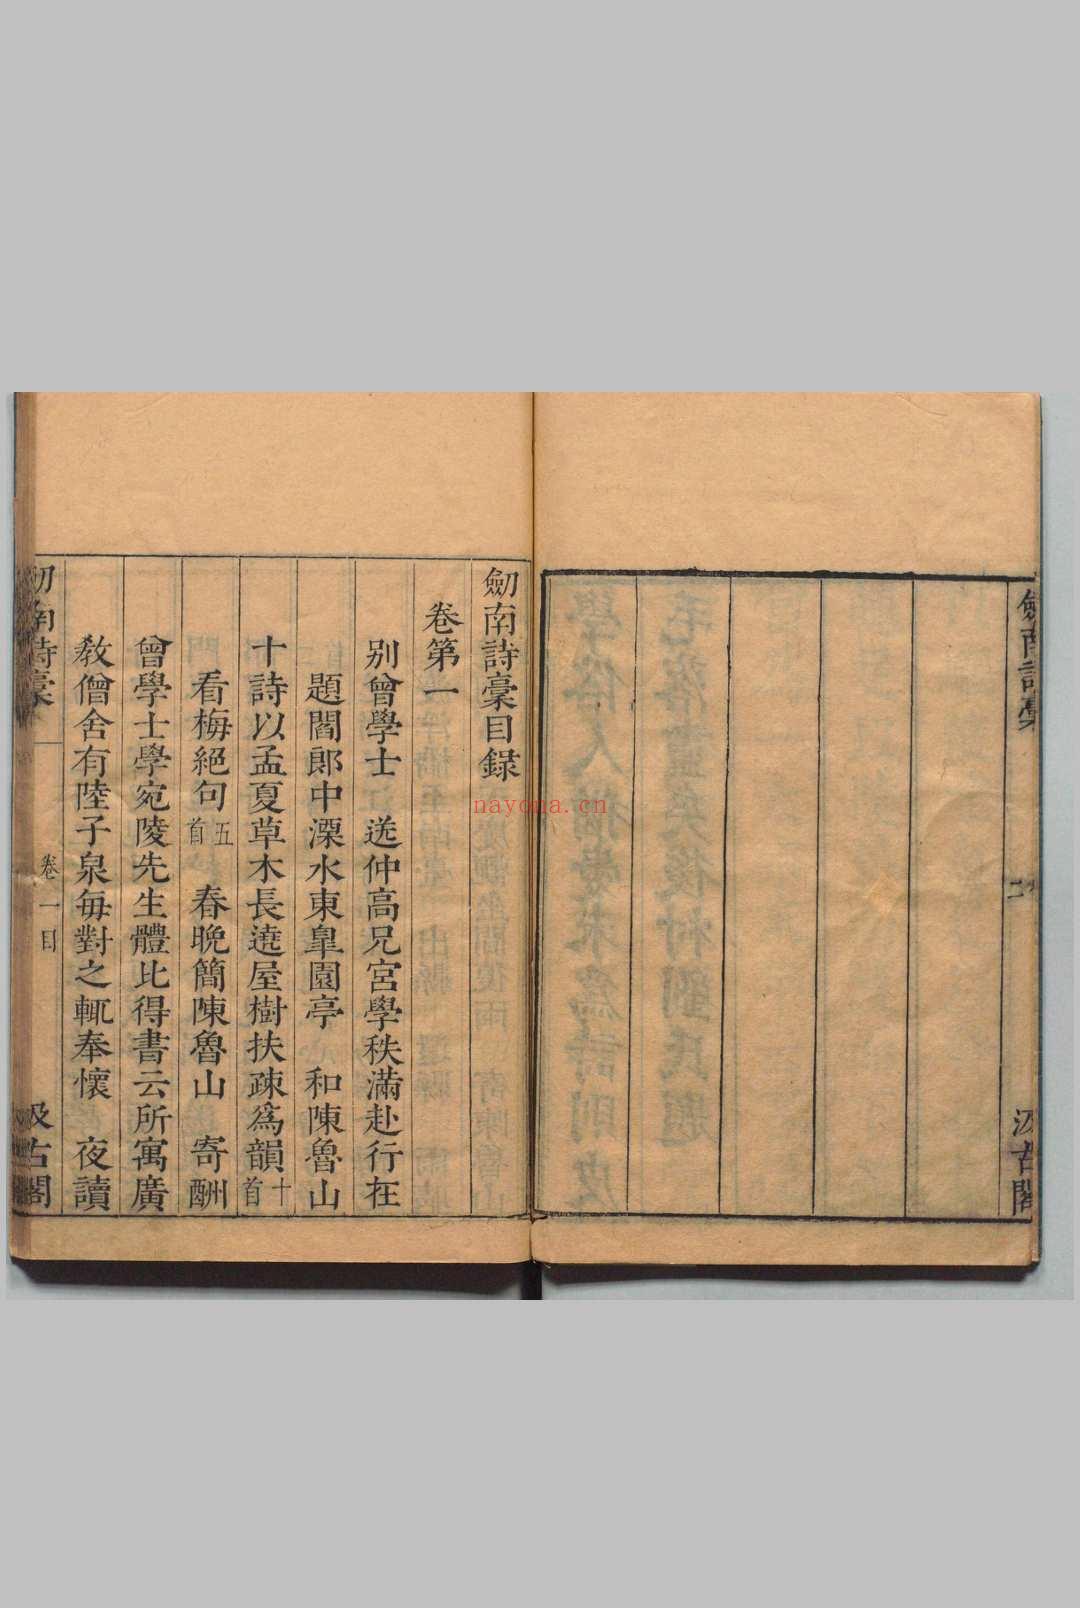 劒南詩稾
二
汲古閣
劒南詩稾目録
卷第一
别曾學士 送仲高兄宮學秩滿赴行在
題閻郎中溧水東臯園亭 和陳魯山
十詩以孟夏草木長遶屋樹扶疎爲韻十首
看梅絕句五首 春晚簡陳魯山 寄酬
曾學士學宛陵先生體比得書云所寓廣
教僧舍有陸子泉每對之輒奉懷 夜讀
南詩稾
卷一目
汲古閣
nayona.cn